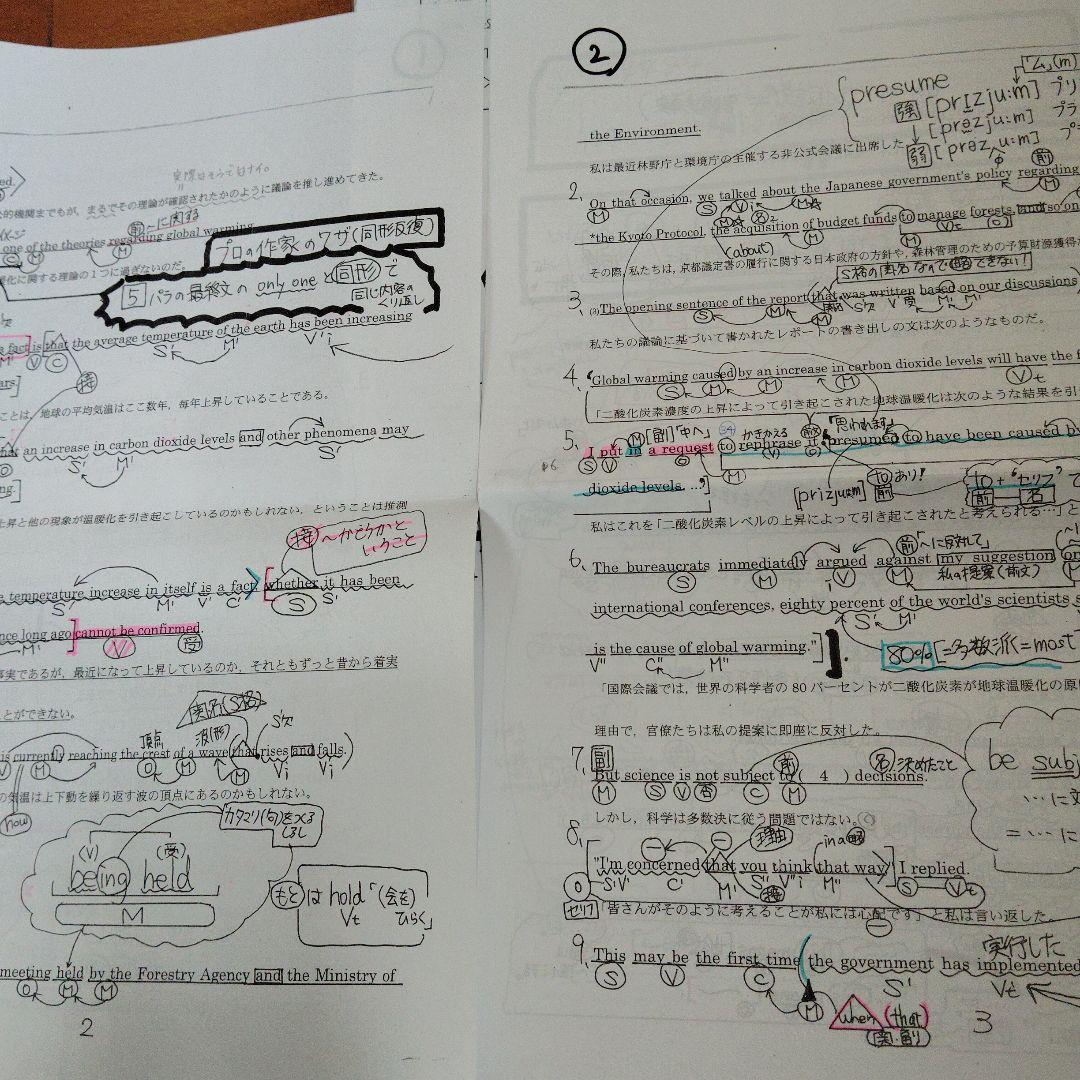 実際はそうではナイ。
的機関までもが，まるでその理論が確認されたかのように議論を推し進めてきた。
前 ～に関する
one of the theories regarding global warming
プロの作家のワザ(同形反復)
暖化に関する理論の1つに過ぎないのだ。
5 パラの最終文の only one と同形で
同じ内容のくり返し
fact is that the average temperature of the earth has been increasing
S' M' V'i
M' V C 接
ears]
ことは，地球の平均気温はここ数年，毎年上昇していることである。
an increase in carbon dioxide levels and other phenomena may
S' M' S'
ng.]
上昇と他の現象が温暖化を引き起こしているのかもしれない，ということは推測
接 ～かどうかということ
e temperature increase in itself is a fact, whether it has been
S' M' V' C' S S'
nce long ago] cannot be confirmed.
M' V 受
事実であるが，最近になって上昇しているのか，それともずっと昔から着実
とができない。
関名(S格) S'欠
頂点 波(形)
is currently reaching the crest of a wave that rises and falls.)
V M O M M Vi Vi
の気温は上下動を繰り返す波の頂点にあるのかもしれない。
now
カタマリ(句)をつくるしるし
(V) (受)
being held
M
もとは hold「(会を)ひらく」
Vt
meeting held by the Forestry Agency and the Ministry of
O M M
2
2
「ム」(m)
presume
強 [prIzju:m] プリ
[prəzju:m] プラ
弱 [prəz u:m] プ
the Environment.
私は最近林野庁と環境庁の主催する非公式会議に出席した
前
2. On that occasion, we talked about the Japanese government's policy regarding
M S Vi M
*the Kyoto Protocol, the acquisition of budget funds to manage forests, and so on
(about) M V O
その際，私たちは，京都議定書の履行に関する日本政府の方針や，森林管理のための予算財源獲得
S格の関名なので略できない!
3. (3)The opening sentence of the report that was written based on our discussions
S M M S'欠 V' 受 M' M'
私たちの議論に基づいて書かれたレポートの書き出しの文は次のようなものだ。
4. "Global warming caused by an increase in carbon dioxide levels will have the f
S M M M Vt
「二酸化炭素濃度の上昇によって引き起こされた地球温暖化は次のような結果を引
M [副]「中へ」 かきかえる 「思われます」
5. I put in a request to rephrase it "presumed to have been caused by
p6. S V O M V O
toあり! to+"セリフ"で
dioxide levels ..."
[prizju:m] 前 前 名
私はこれを「二酸化炭素レベルの上昇によって引き起こされたと考えられる…」と
前「～に反対して」
6. The bureaucrats immediately argued against my suggestion
S M V i M 私の提案(前文)
international conferences, eighty percent of the world's scientists s
S' M'
is the cause of global warming."].
V" C" M" 80%[=多数派=most
「国際会議では，世界の科学者の 80 パーセントが二酸化炭素が地球温暖化の原
理由で，官僚たちは私の提案に即座に反対した。
副 前 名 決めたこと
7. But science is not subject to ( 4 ) decisions.
M S V 否 C M
be subj
…に文
= …に
しかし，科学は多数決に従う問題ではない。
理由
8. "I'm concerned that you think that way" I replied.
O S'V' C' M' S" V"i M" S Vt
接
セリフ「皆さんがそのように考えることが私には心配です」と私は言い返した。
実行した
9. This may be the first time the government has implemented
S V C S' Vt
M when (that)
関・副
3